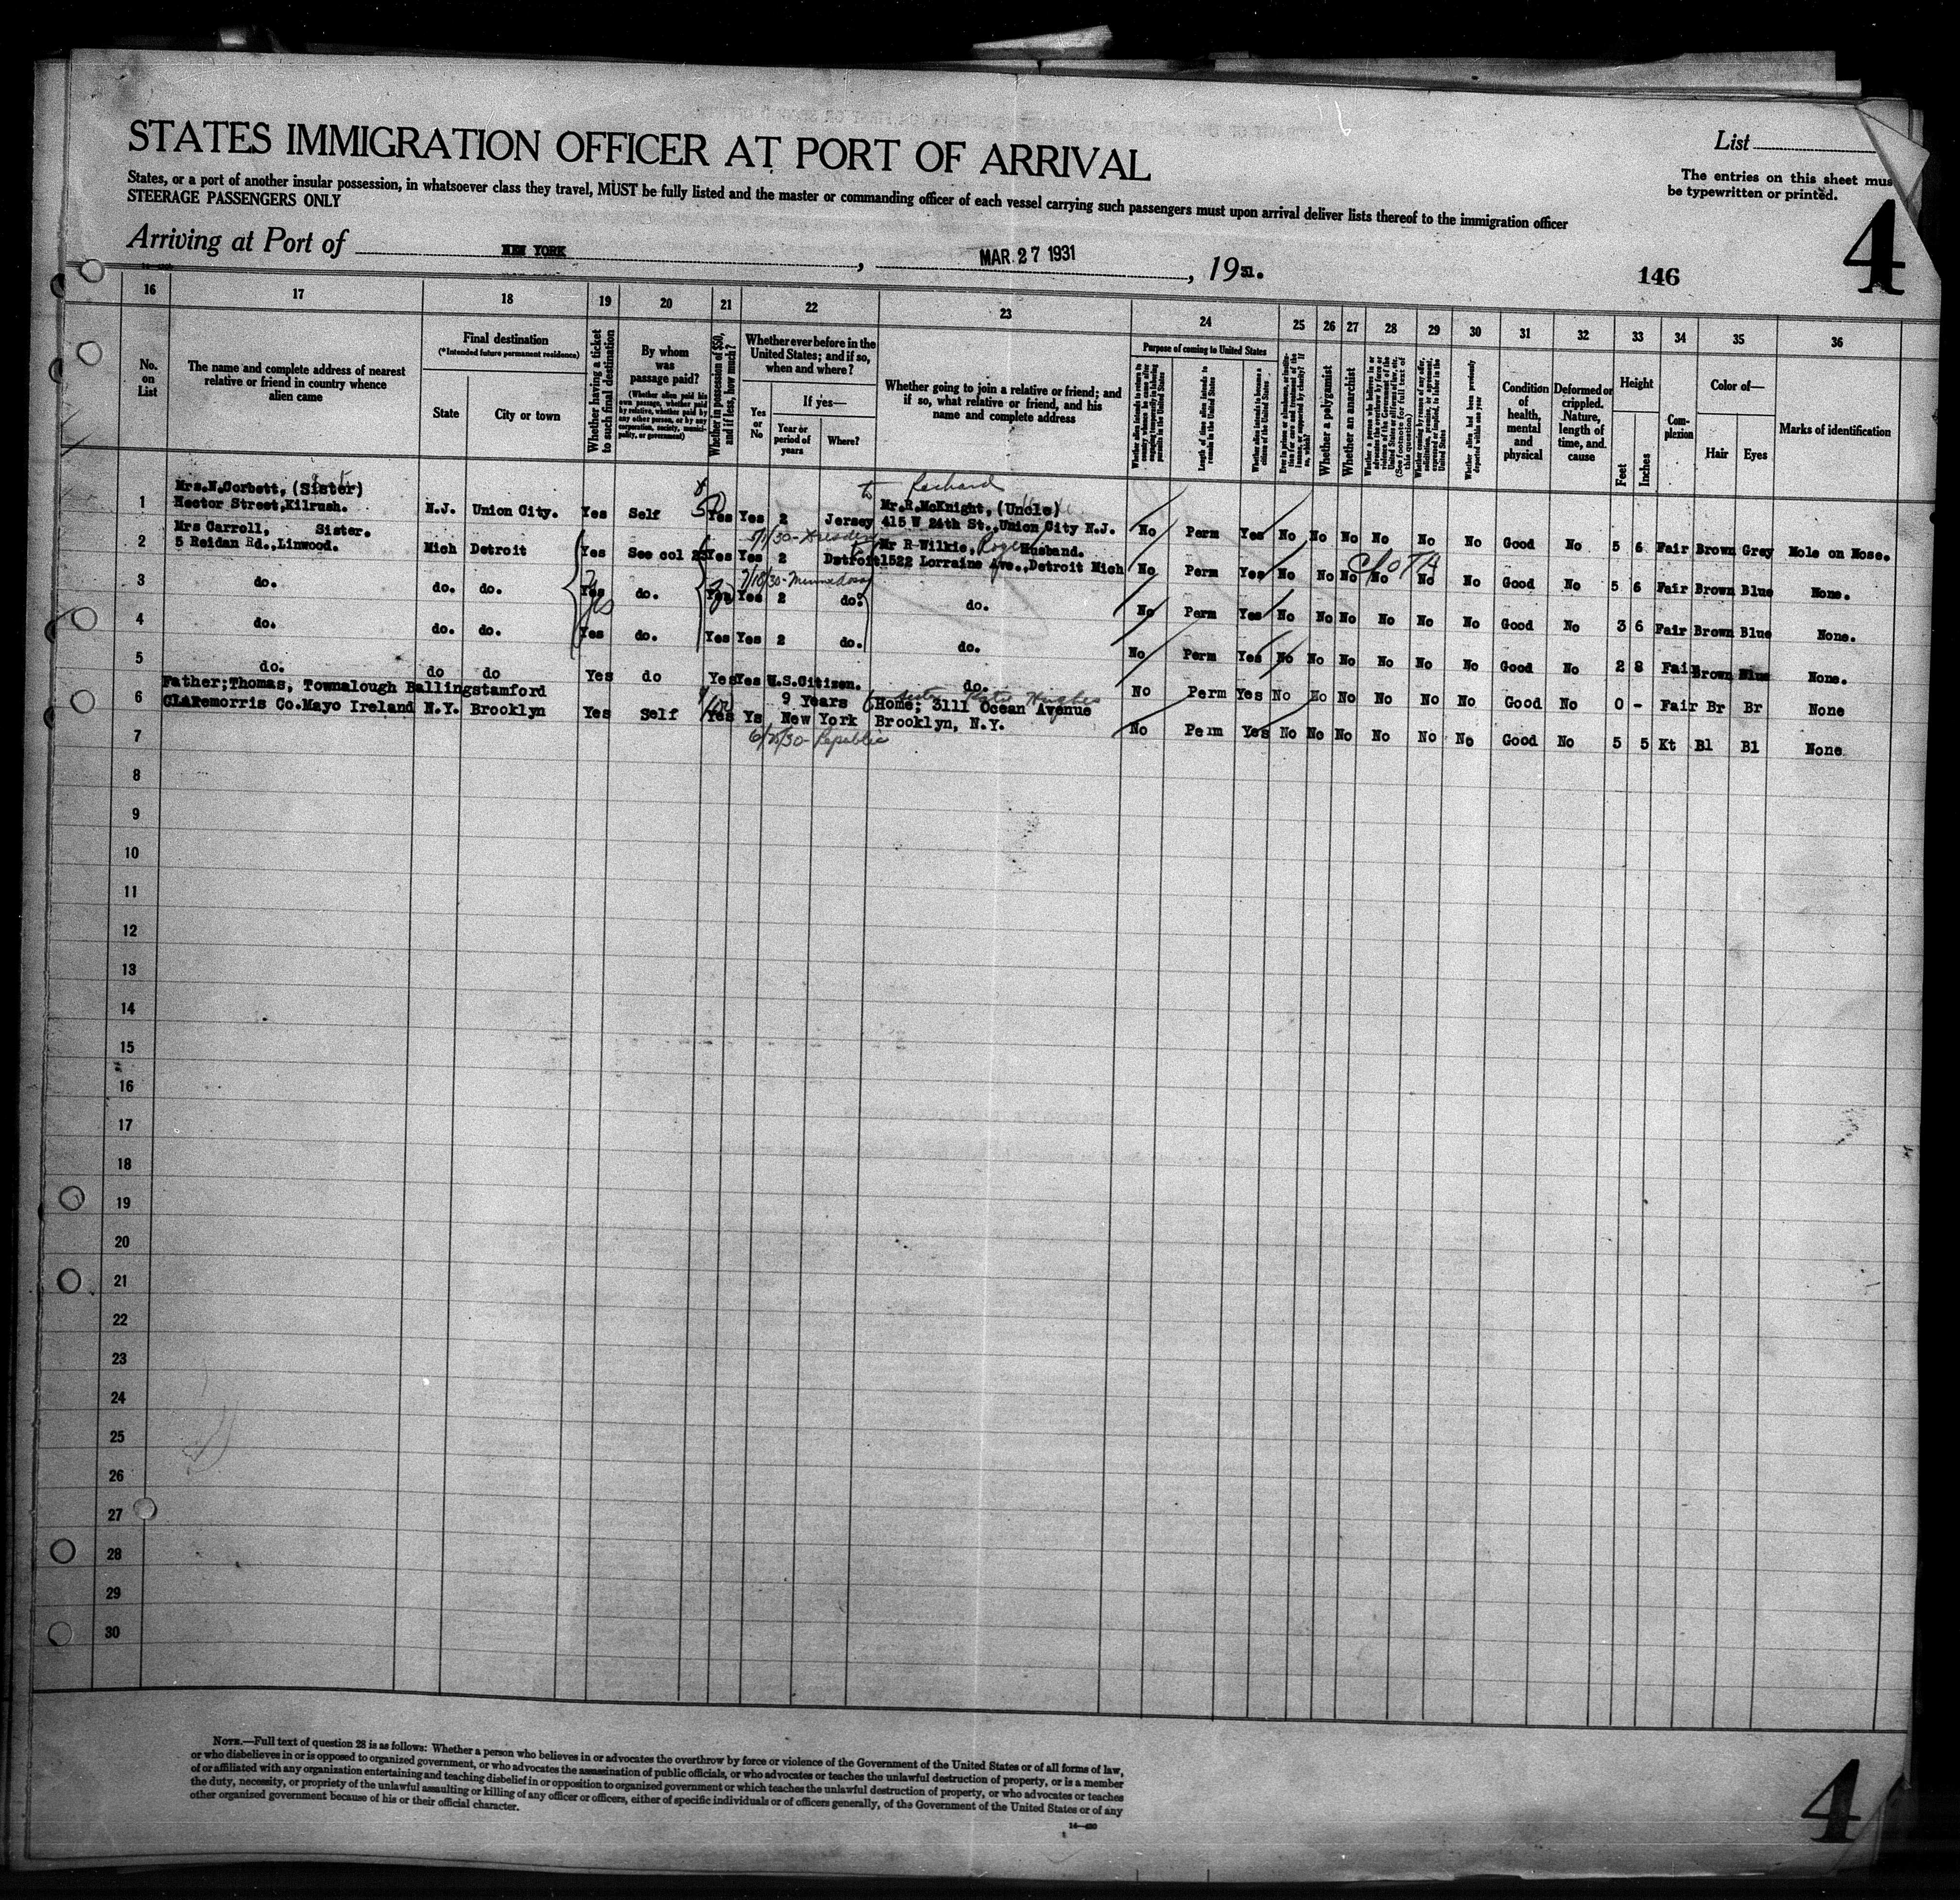 STATES IMMIGRATION OFFICER AT PORT OF ARRIVAL
List
The entries on this sheet must
be typewritten or printed.
States, or a port of another insular possession, in whatsoever class they travel, MUST be fully listed and the master or commanding officer of each vessel carrying such passengers must upon arrival deliver lists thereof to the immigration officer
STEERAGE PASSENGERS ONLY
4
Arriving at Port of NEW YORK, MAR 27 1931, 1931.
146
16 17 18 19 20 21 22 23 24 25 26 27 28 29 30 31 32 33 34 35 36
No. on List
The name and complete address of nearest relative or friend in country whence alien came
Final destination
(*Intended future permanent residence)
State
City or town
Whether having a ticket to such final destination
By whom was passage paid?
(Whether alien paid his own passage, whether paid by relative, whether paid by any other person, or by any corporation, society, municipality, or government)
Whether in possession of $50, and if less, how much?
Whether ever before in the United States; and if so, when and where?
Yes or No
If yes—
Year or period of years
Where?
Whether going to join a relative or friend; and if so, what relative or friend, and his name and complete address
Purpose of coming to United States
Length of time alien intends to remain in the United States
Whether alien intends to become a citizen of the United States
Whether a polygamist
Whether an anarchist
Whether alien had been previously deported within one year
Condition of health, mental and physical
Deformed or crippled. Nature, length of time, and cause
Height
Feet
Inches
Complexion
Color of—
Hair
Eyes
Marks of identification
Richard
Mrs.N.Corbett, (Sister) Mr.R.McKnight, (Uncle)
1 Hector Street,Kilrush. N.J. Union City. Yes Self Yes Yes 2 Jersey 415 W 24th St.,Union City N.J. No Perm Yes No No No No No No Good No 5 6 Fair Brown Grey Mole on Nose.
Mrs Carroll, Sister. Mr R Wilkie, Roger Husband.
2 5 Reidan Rd.,Linwood. Mich Detroit Yes See col 23 Yes Yes 2 Detroit 1522 Lorraine Ave.,Detroit Mich No Perm Yes No No No No No No Good No 5 6 Fair Brown Blue None.
3 do. do. do. Yes do. Yes Yes 2 do. do. No Perm Yes No No No No No No Good No 3 6 Fair Brown Blue None.
4 do. do. do. Yes do. Yes Yes 2 do. do. No Perm Yes No No No No No No Good No 2 8 Fai Brown Blue None.
5 do. do do Yes do Yes Yes U.S.Citizen. do. No Perm Yes No No No No No No Good No 0 - Fair Br Br None
Father;Thomas, Townalough Ballingstamford 9 Years Home; 3111 Ocean Avenue
6 CLARemorris Co.Mayo Ireland N.Y. Brooklyn Yes Self Yes Ys New York Brooklyn, N.Y. No Perm Yes No No No No No No Good No 5 5 Kt Bl Bl None
6/25/30-Republic
7
8
9
10
11
12
13
14
15
16
17
18
19
20
21
22
23
24
25
26
27
28
29
30
NOTE.—Full text of question 28 is as follows: Whether a person who believes in or advocates the overthrow by force or violence of the Government of the United States or of all forms of law,
or who disbelieves in or is opposed to organized government, or who advocates the assassination of public officials, or who advocates or teaches the unlawful destruction of property, or is a member
of or affiliated with any organization entertaining and teaching disbelief in or opposition to organized government or which teaches the unlawful destruction of property, or who advocates or teaches
the duty, necessity, or propriety of the unlawful assaulting or killing of any officer or officers, either of specific individuals or of officers generally, of the Government of the United States or of any
other organized government because of his or their official character.
4